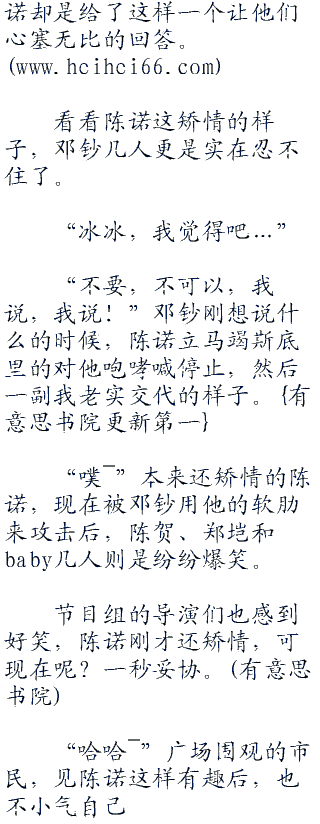 诺却是给了这样一个让他们
心塞无比的回答。
(www.hcihci66.com)
看看陈诺这矫情的样
子，邓钞几人更是实在忍不
住了。
“冰冰，我觉得吧…”
“不要，不可以，我
说，我说！”邓钞刚想说什
么的时候，陈诺立马竭斯底
里的对他咆哮喊停止，然后
一副我老实交代的样子。{有
意思书院更新第一}
“噗¯”本来还矫情的陈
诺，现在被邓钞用他的软肋
来攻击后，陈贺、郑垲和
baby几人则是纷纷爆笑。
节目组的导演们也感到
好笑，陈诺刚才还矫情，可
现在呢？一秒妥协。(有意思
书院)
“哈哈¯”广场围观的市
民，见陈诺这样有趣后，也
不小气自己